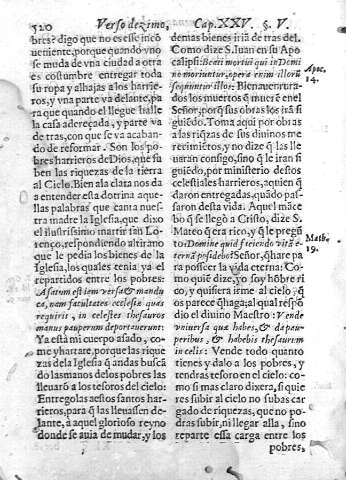 520 Verso dezimo, Cap. XXV. §. V.
bres? digo que no es esse incõ
ueniente, porque quando vno
se muda de vna ciudad a otra
es costumbre entregar toda
su ropa y alhajas a los harrie-
ros, y vna parte va delante, pa
ra que quando el llegue halle
la casa adereçada, y parte va
de tras, con que se va acaban-
do de reformar. Son los po-
bres harrieros de Dios, que sa
ben las riquezas de la tierra
al Cielo. Bien a la clara nos da
a entender esta dotrina aque-
llas palabras que canta nues-
tra madre la Iglesia, que dixo
el ilustrissimo martir san Lo-
renço, respondiendo al tirano
que le pedia los bienes de la
Iglesia, los quales tenia ya el
repartidos entre los pobres:
Assatum est iam versa & mandu
ca, nam facultates ecclesiæ quas
requiris, in celestes thesauros
manus pauperum deportauerunt:
Ya està mi cuerpo asado, co-
me y hartate, porque las rique
zas de la Iglesia q̃ andas busca̅
do las manos de los pobres las
lleuarõ a los tesoros del cielo:
Entregolas a estos santos harr-
rieros, para q̃ las lleuassen de-
lante, à aquel glorioso reyno
donde se auia de mudar, y los
demas bienes iriã de tras del.
Como dize S. Iuan en su Apo
calipsi: Beati mortui qui in Domi
no moriuntur, opera enim illorũ
sequuntur illos: Bienauentura-
dos los muertos q̃ muerẽ en el
Señor, porq̃ sus obras los irã si
guiẽdo: Toma aqui por obras
a las riq̃zas de sus diuinos me
recimiẽtos, y no dize q̃ las lle
uarán consigo, sino q̃ le iran si
guiẽdo, por ministerio destos
celestiales harrieros, a quien q̃
daron entregadas, quãdo pas-
saron desta vida. Aquel mãce
bo q̃ se llegò a Cristo, dize S.
Mateo q̃ era rico, y q̃ le pregũ
to: Domine quid faciendo vitã e-
ternã possidebo? Señor, q̃ hare pa
ra posseer la vida eterna: Co-
mo quiẽ dize, yo soy hõbre ri
co, y quisiera irme al cielo, q̃
os parece q̃ haga; al qual respõ
dio el diuino Maestro: Vende
vniuersa quæ habes, & da pau-
peribus, & habebis thesaurum
in celis: Vende todo quanto
tienes y dalo a los pobres, y
tendras tesoro en el cielo: co-
mo si mas claro dixera, si quie
res subir al cielo no subas car
gado de riquezas, que no po-
dras subir, ni llegar alla, sino
reparte essa carga entre los
pobres,
Apoc.
14.
Math.
19.